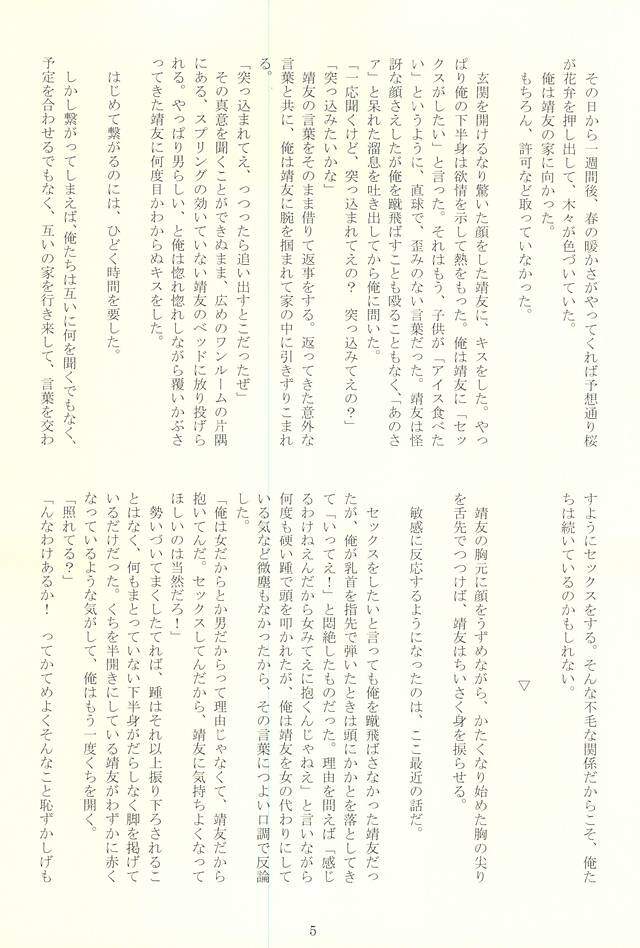 その日から一週間後、春の暖かさがやってくれば予想通り桜
が花弁を押し出して、木々が色づいていた。
俺は靖友の家に向かった。
もちろん、許可など取っていなかった。
玄関を開けるなり驚いた顔をした靖友に、キスをした。やっ
ぱり俺の下半身は欲情を示して熱をもった。俺は靖友に「セッ
クスがしたい」と言った。それはもう、子供が「アイス食べた
い」というように、直球で、歪みのない言葉だった。靖友は怪
訝な顔さえしたが俺を蹴飛ばすことも殴ることもなく、「あのさ
ァ」と呆れた溜息を吐き出してから俺に問いた。
「一応聞くけど、突っ込まれてえの? 突っ込みてえの?」
「突っ込みたいかな」
靖友の言葉をそのまま借りて返事をする。返ってきた意外な
言葉と共に、俺は靖友に腕を掴まれて家の中に引きずりこまれ
る。
「突っ込まれてえ、っつったら追い出すとこだったぜ」
その真意を聞くことができぬまま、広めのワンルームの片隅
にある、スプリングの効いていない靖友のベッドに放り投げら
れる。やっぱり男らしい、と俺は惚れ惚れしながら覆いかぶさ
ってきた靖友に何度目かわからぬキスをした。
はじめて繋がるのには、ひどく時間を要した。
しかし繋がってしまえば、俺たちは互いに何を聞くでもなく、
予定を合わせるでもなく、互いの家を行き来して、言葉を交わ
すようにセックスをする。そんな不毛な関係だからこそ、俺た
ちは続いているのかもしれない。
▽
靖友の胸元に顔をうずめながら、かたくなり始めた胸の尖り
を舌先でつつけば、靖友はちいさく身を捩らせる。
敏感に反応するようになったのは、ここ最近の話だ。
セックスをしたいと言っても俺を蹴飛ばさなかった靖友だっ
たが、俺が乳首を指先で弾いたときは頭にかかとを落としてき
て「いってえ!」と悶絶したものだった。理由を問えば「感じ
るわけねえんだから女みてえに抱くんじゃねえ」と言いながら
何度も硬い踵で頭を叩かれたが、俺は靖友を女の代わりにして
いる気など微塵もなかったから、その言葉につよい口調で反論
した。
「俺は女だからとか男だからって理由じゃなくて、靖友だから
抱いてんだ。セックスしてんだから、靖友に気持ちよくなって
ほしいのは当然だろ!」
勢いづいてまくしたてれば、踵はそれ以上振り下ろされるこ
とはなく、何もまとっていない下半身がだらしなく脚を掲げて
いるだけだった。くちを半開きにしている靖友がわずかに赤く
なっているような気がして、俺はもう一度くちを開く。
「照れてる?」
「んなわけあるか! ってかてめよくそんなこと恥ずかしげも
5